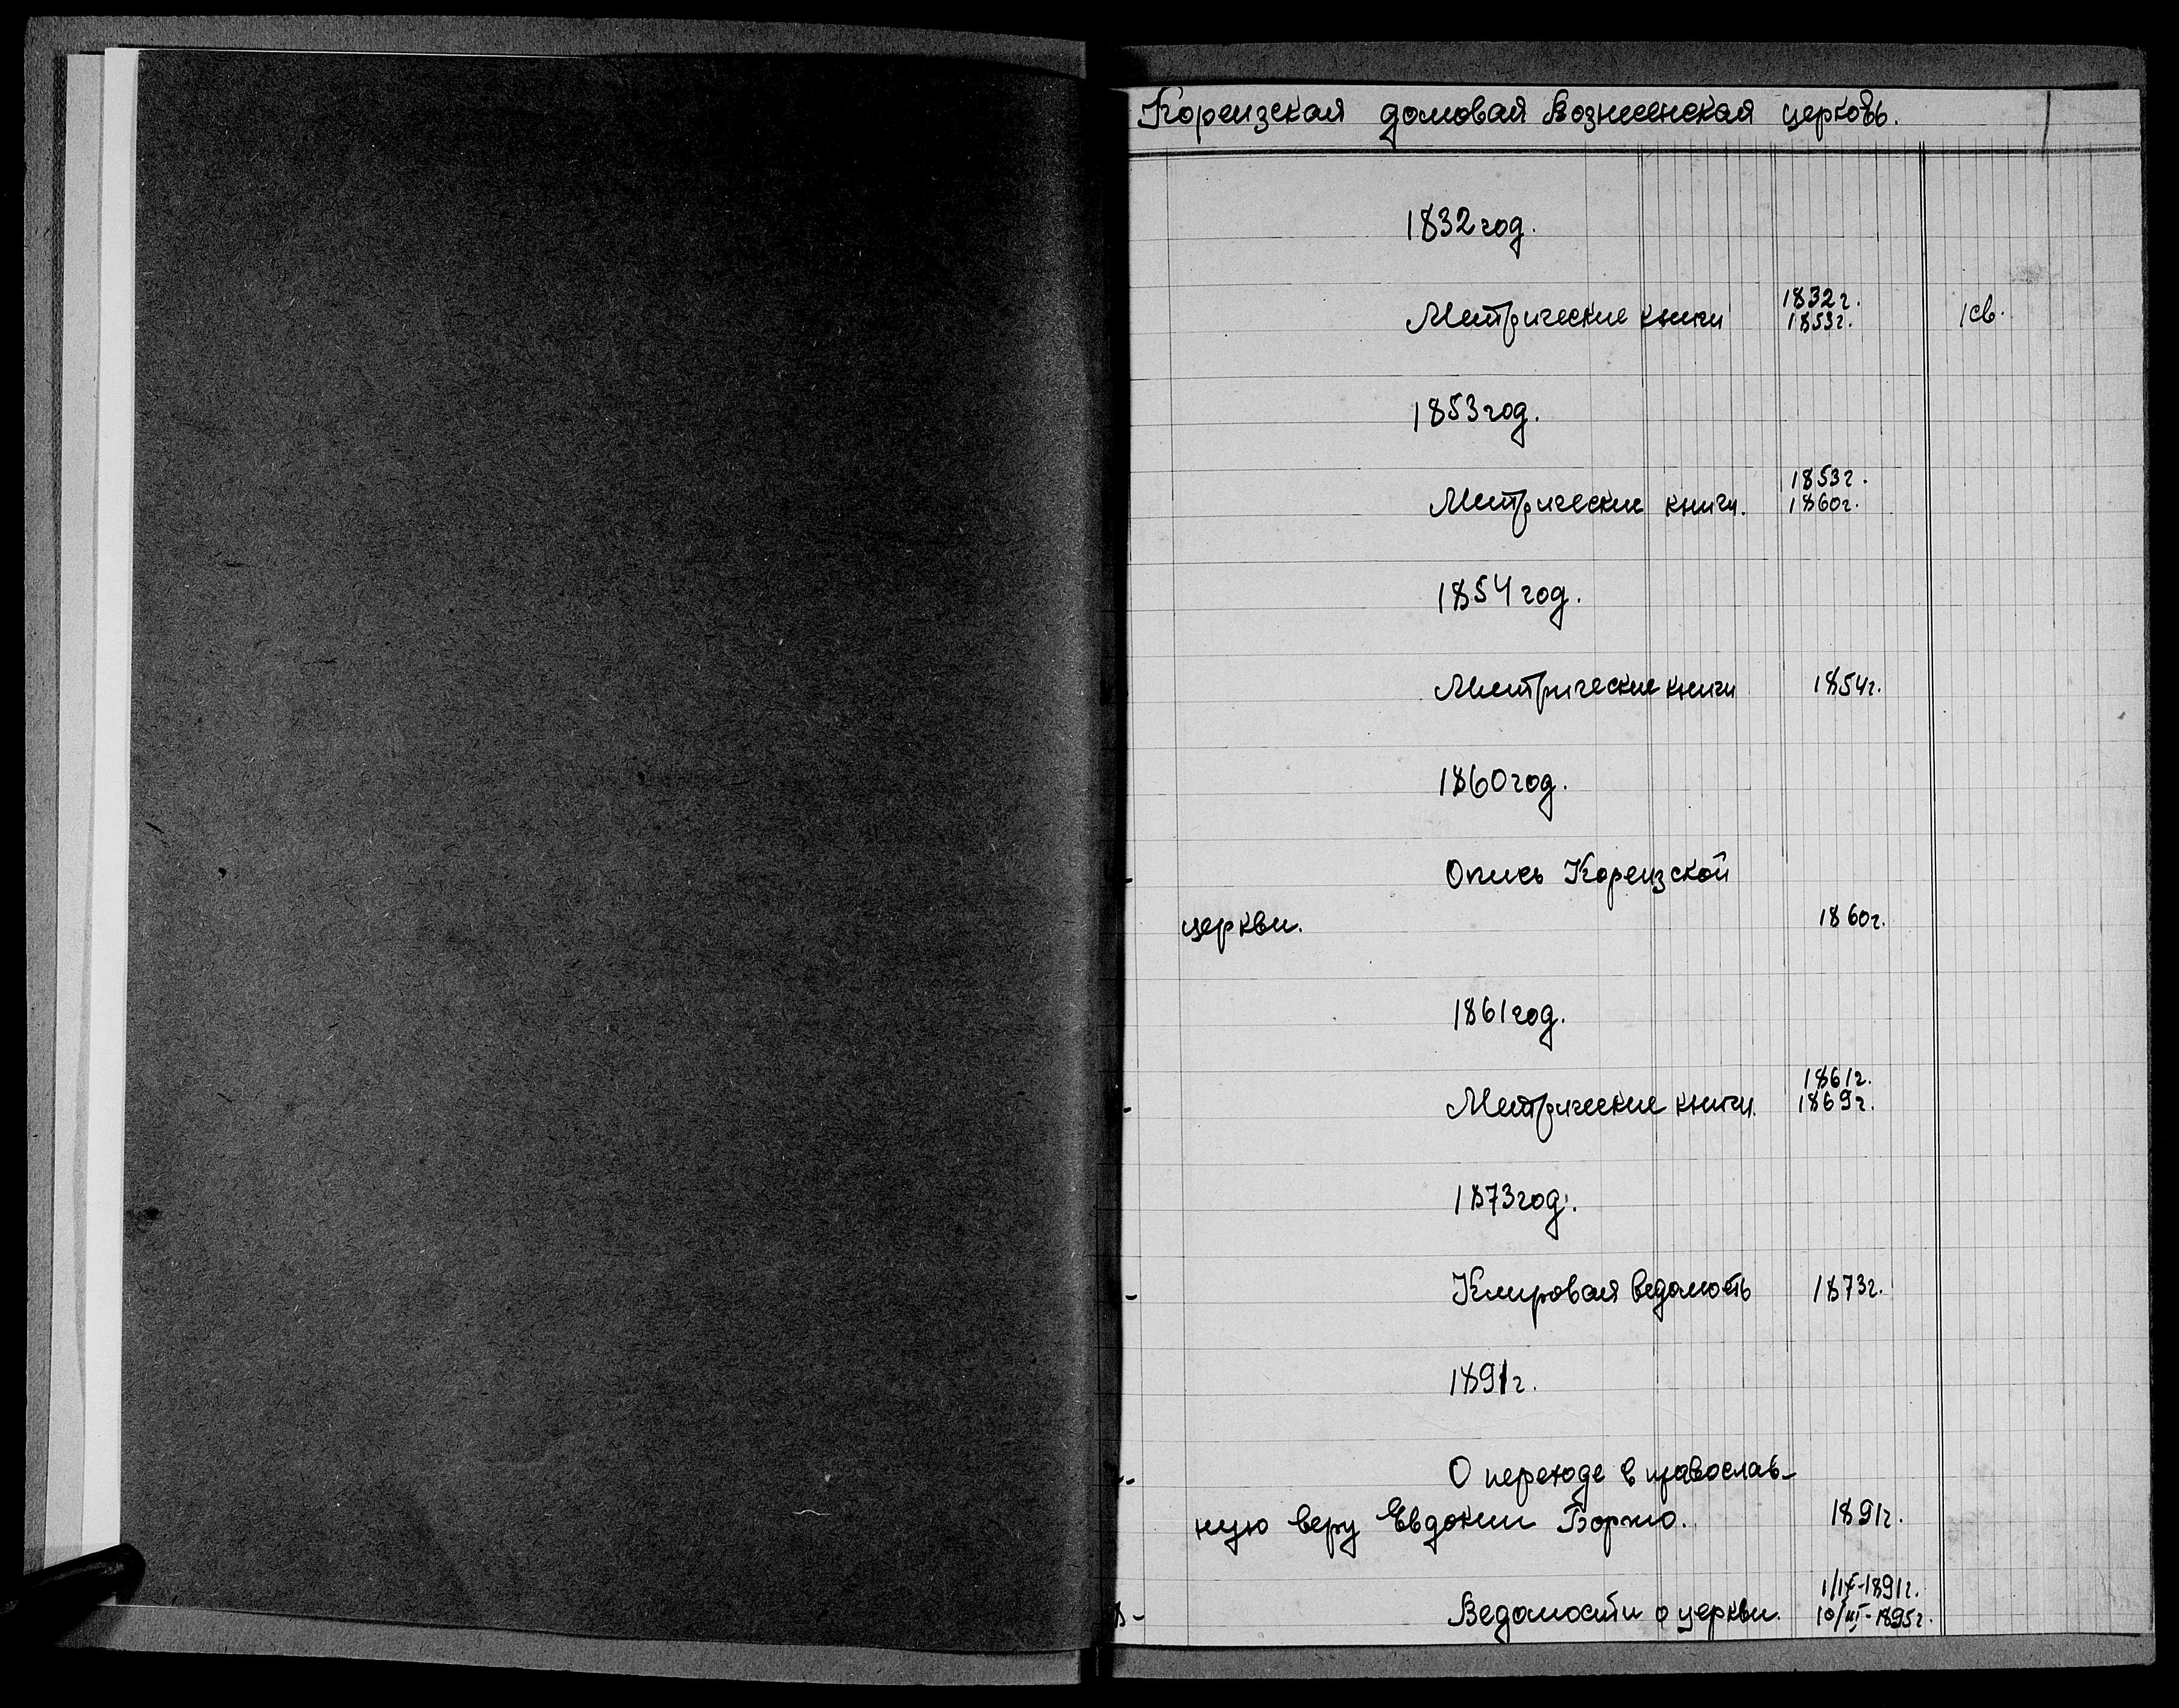 Кореизская домовая Вознесенская церковь.
1832 год.
Метрические книги 1832г. 1853г. 1св.
1853 год.
Метрические книги. 1853г. 1860г.
1854 год.
Метрические книги 1854г.
1860 год.
Опись Кореизской
церкви. 1860г.
1861 год.
Метрические книги. 1861г. 1869г.
1873 год.
Клировая ведомость 1873г.
1891г.
О переходе в православ-
ную веру Евдокии Боржо. 1891г.
Ведомости о церкви. 1/IX-1891г. 10/III-1895г.